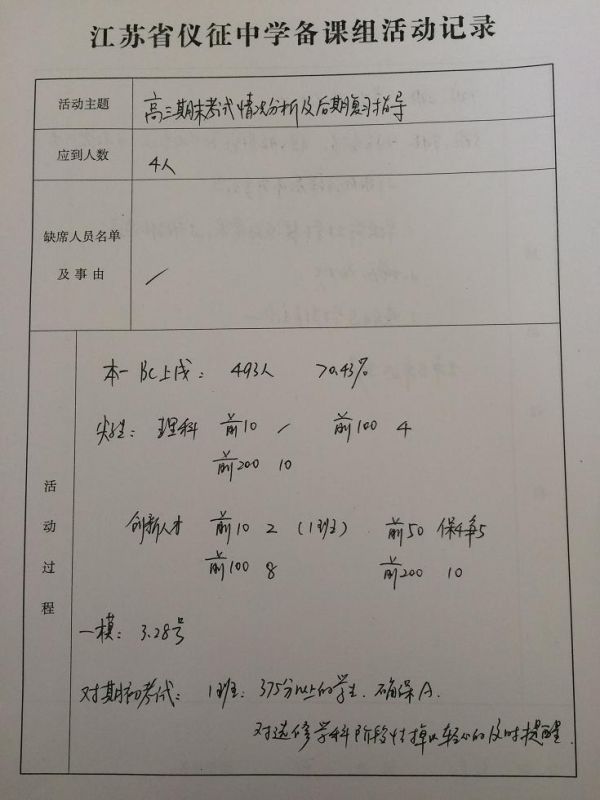 江苏省仪征中学备课组活动记录
活动主题 高三期末考试情况分析及后期复习指导
应到人数 4人
缺席人员名单
及事由 /
活动过程
本一BC上线: 493人 70.43%
尖子生: 理科 前10 / 前100 4
前200 10
创新人才 前10 2 (1班) 前50 保4争5
前100 8 前200 10
一模: 3.28号
对期初考试: 1班: 375分以上的学生. 确保A.
对选修学科阶段性掉以轻心的及时提醒.